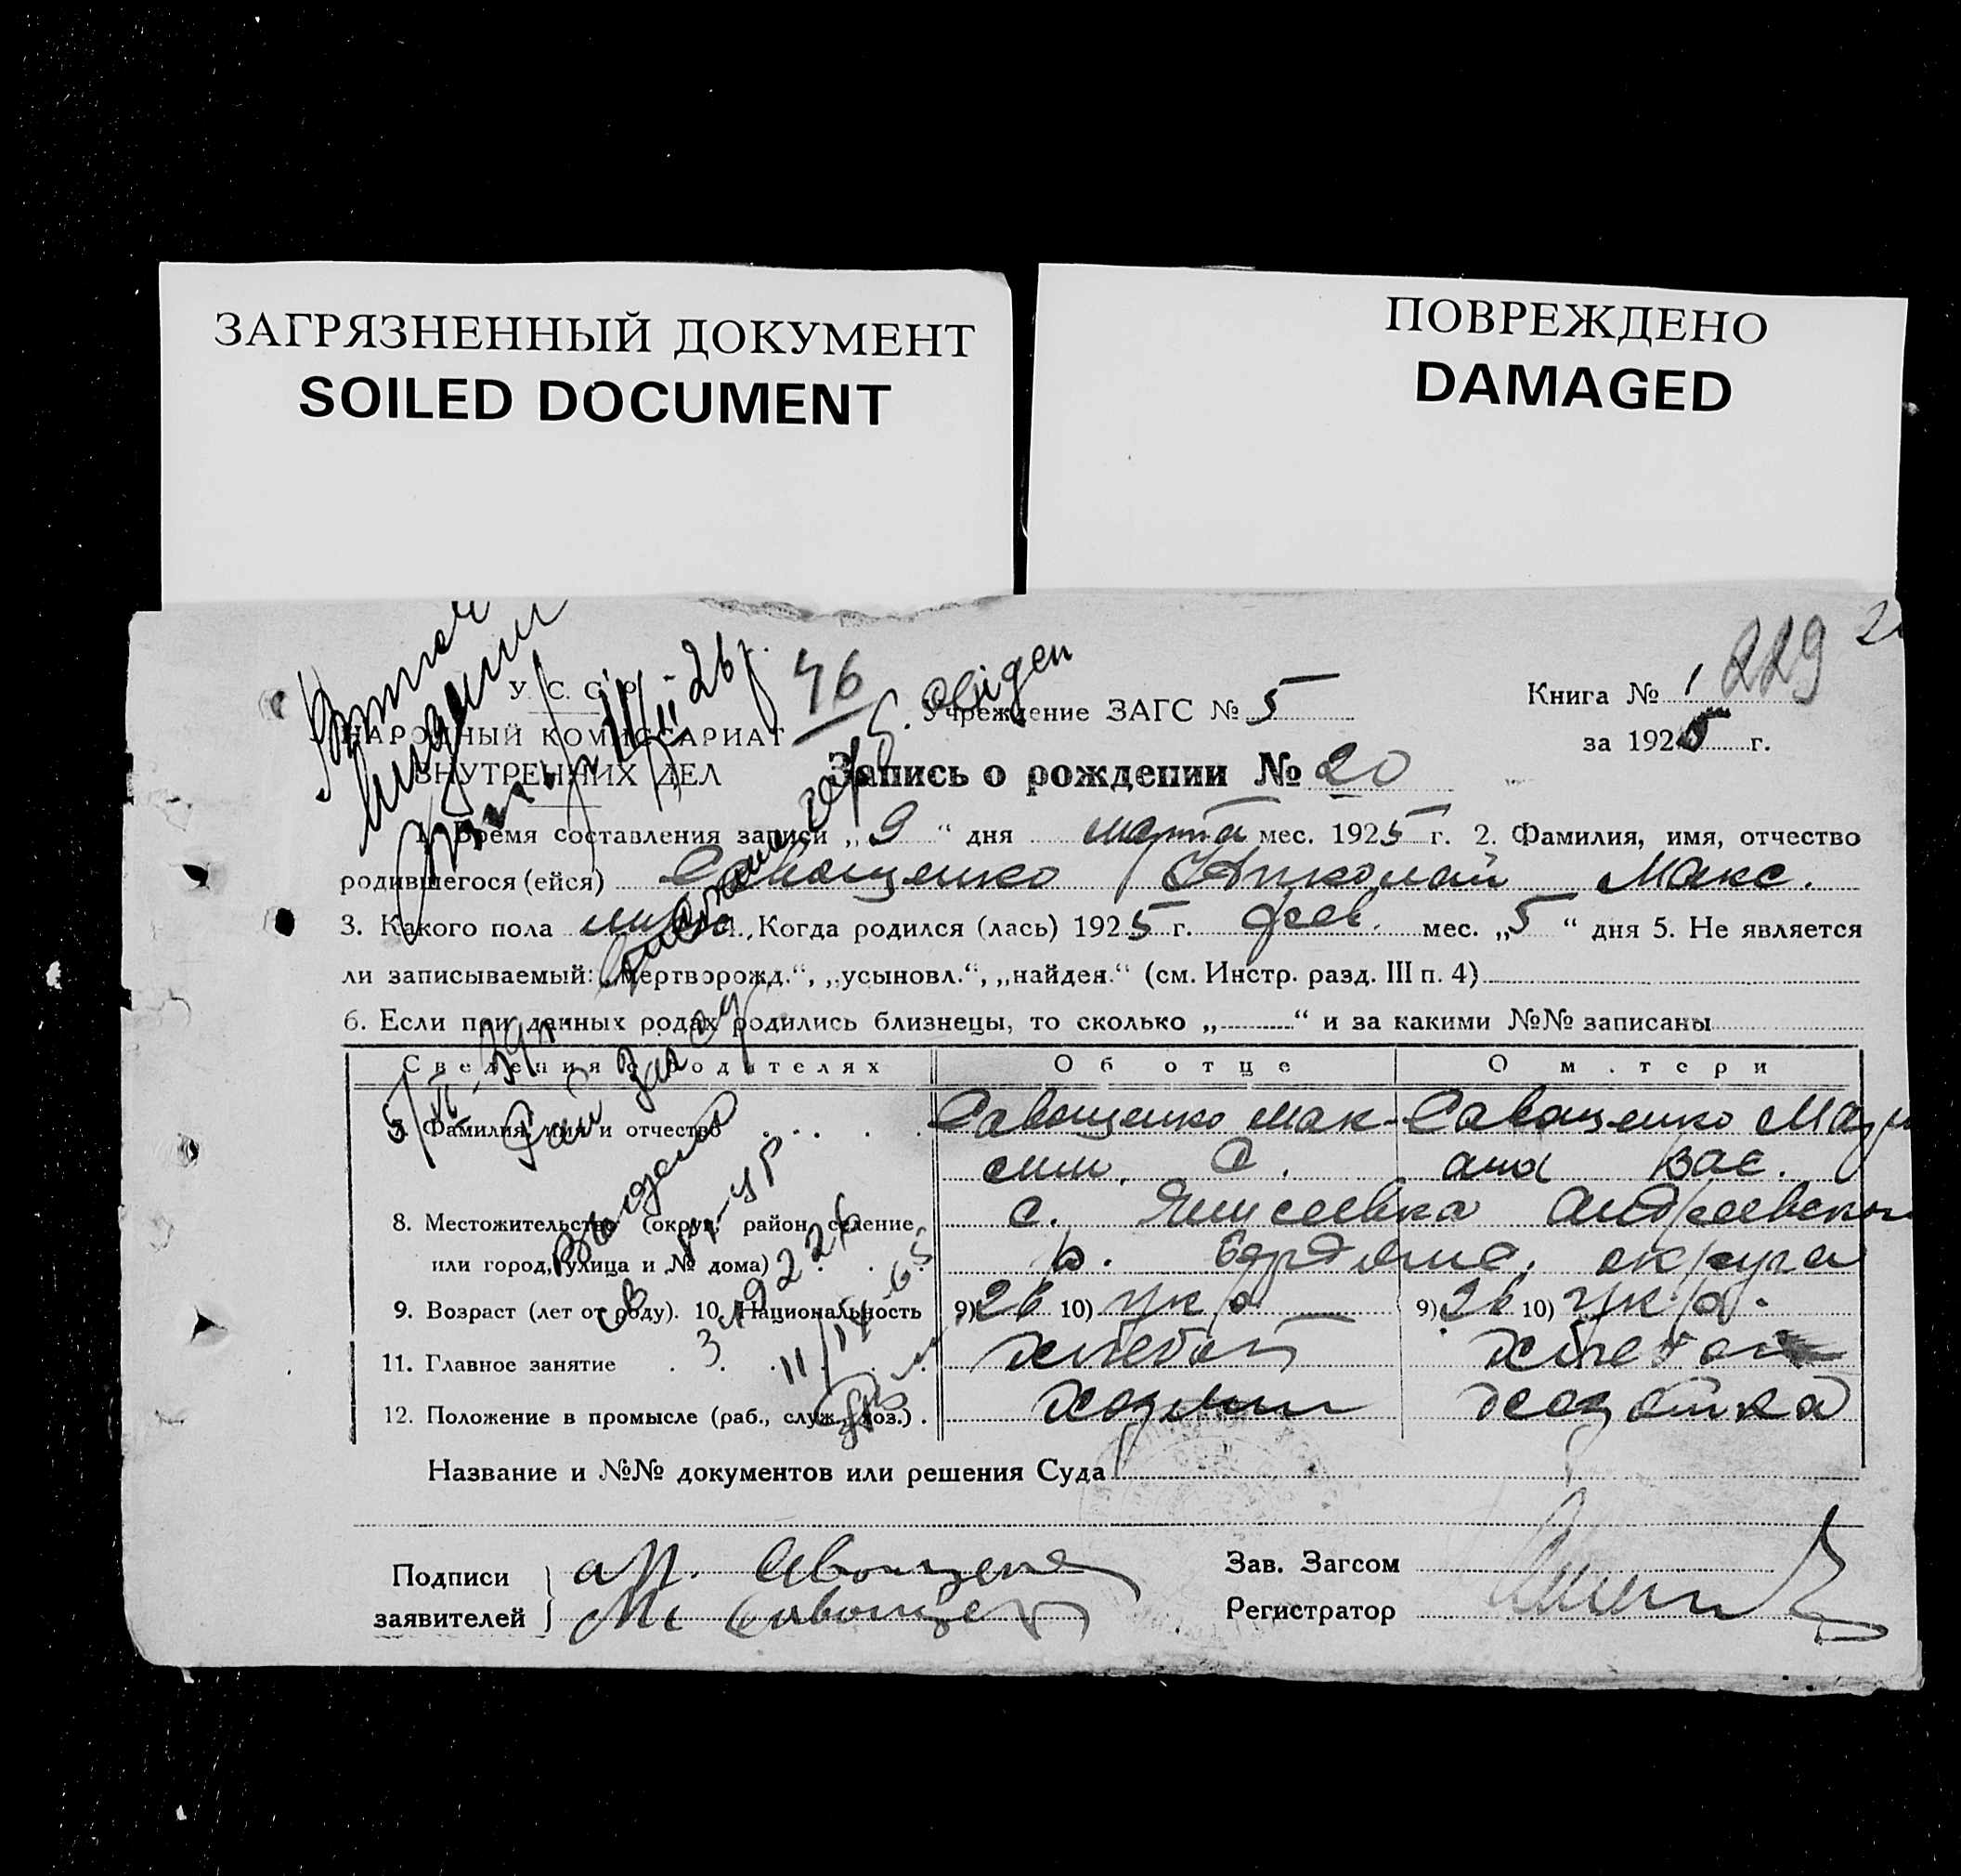 ЗАГРЯЗНЕННЫЙ ДОКУМЕНТ
SOILED DOCUMENT
ПОВРЕЖДЕНО
DAMAGED
229
46
У. С. С. Р.
НАРОДНЫЙ КОМИССАРИАТ
ВНУТРЕННИХ ДЕЛ
Учреждение ЗАГС № 5
Книга № 1
за 1925 г.
Запись о рождении № 20
1. Время составления записи „9“ дня марта мес. 1925 г. 2. Фамилия, имя, отчество
родившегося (ейся) Савощенко Николай Макс.
3. Какого пола Когда родился (лась) 1925 г. фев. мес. „5“ дня 5. Не является
ли записываемый: „мертворожд.“, „усыновл.“, „найден.“ (см. Инстр. разд. III п. 4)
6. Если при данных родах родились близнецы, то сколько „ “ и за какими №№ записаны
Сведения о родителях Об отце О матери
7. Фамилия, имя и отчество Савощенко Мак- Савощенко
сим. С. Вас.
8. Местожительство (округ, район, селение, с. Андреевског
или город, улица и № дома) р. Бердянс. округа
9. Возраст (лет от роду). 10. Национальность 9) 26 10) Укр 9) 26 10) Укр.
11. Главное занятие хлебоп хлебоп
12. Положение в промысле (раб., служ., хоз.) хозяин хозяйка
Название и №№ документов или решения Суда
Подписи
заявителей
М Савощен
Зав. Загсом
Регистратор
Выдано
св
11/IV-65